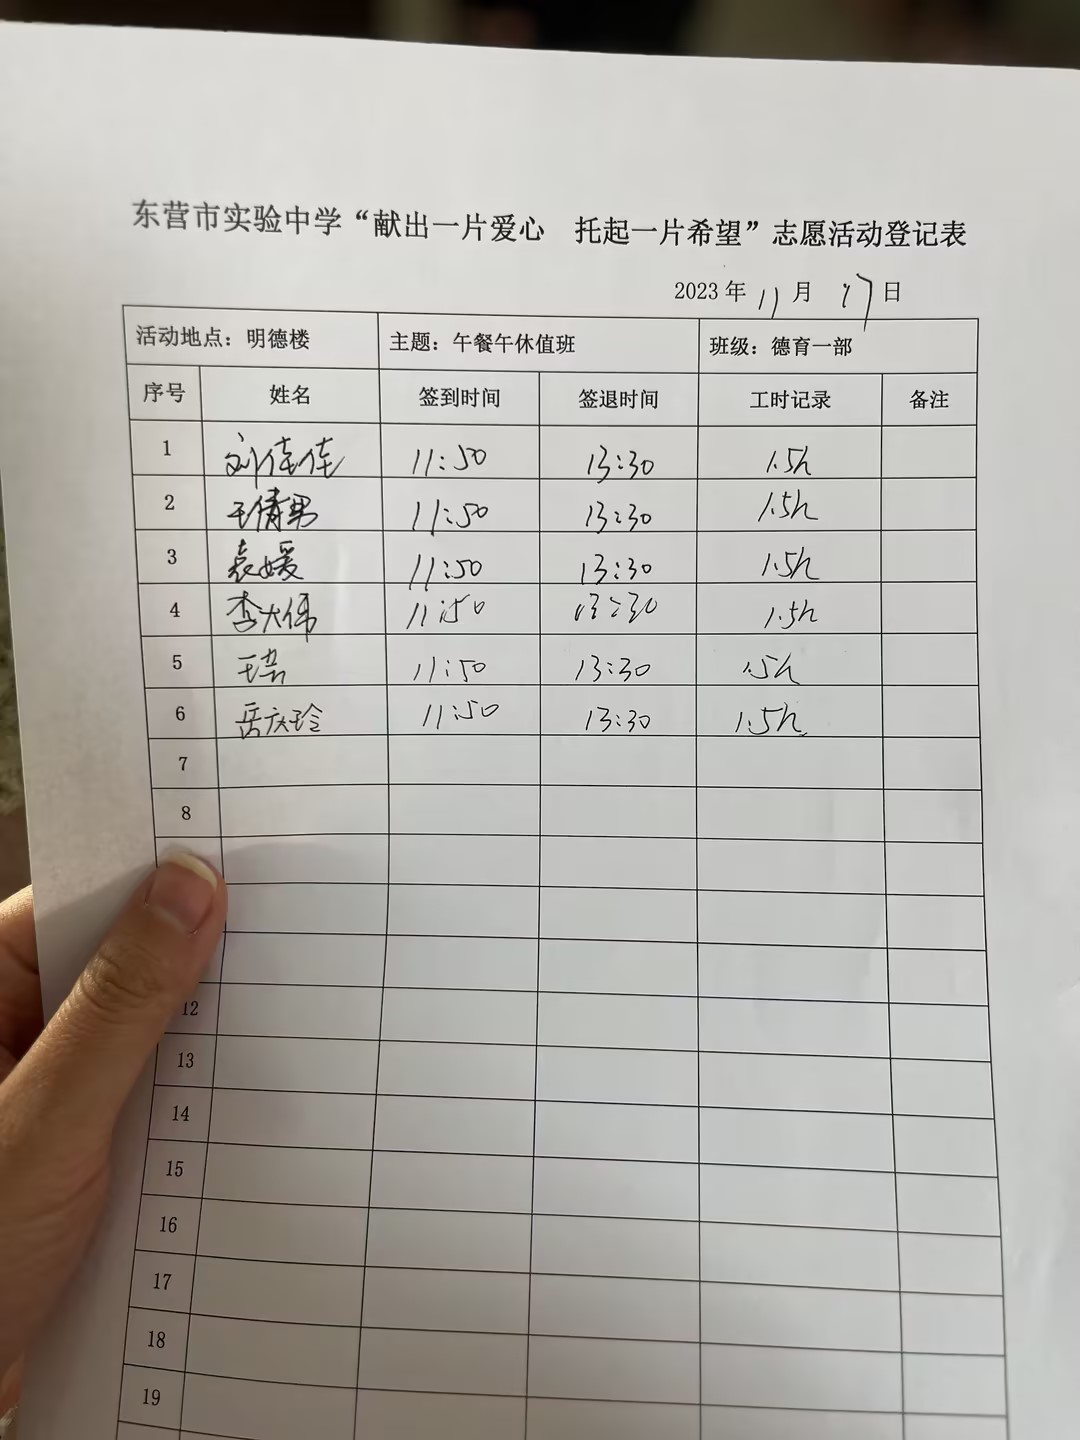 东营市实验中学“献出一片爱心 托起一片希望”志愿活动登记表
2023 年 11 月 17 日
活动地点：明德楼 主题：午餐午休值班 班级：德育一部
序号 姓名 签到时间 签退时间 工时记录 备注
1 刘佳佳 11:50 13:30 1.5h
2 王倩男 11:50 13:30 1.5h
3 袁媛 11:50 13:30 1.5h
4 李大伟 11:50 13:30 1.5h
5 王 11:50 13:30 1.5h
6 岳庆玲 11:50 13:30 1.5h
7
8
12
13
14
15
16
17
18
19